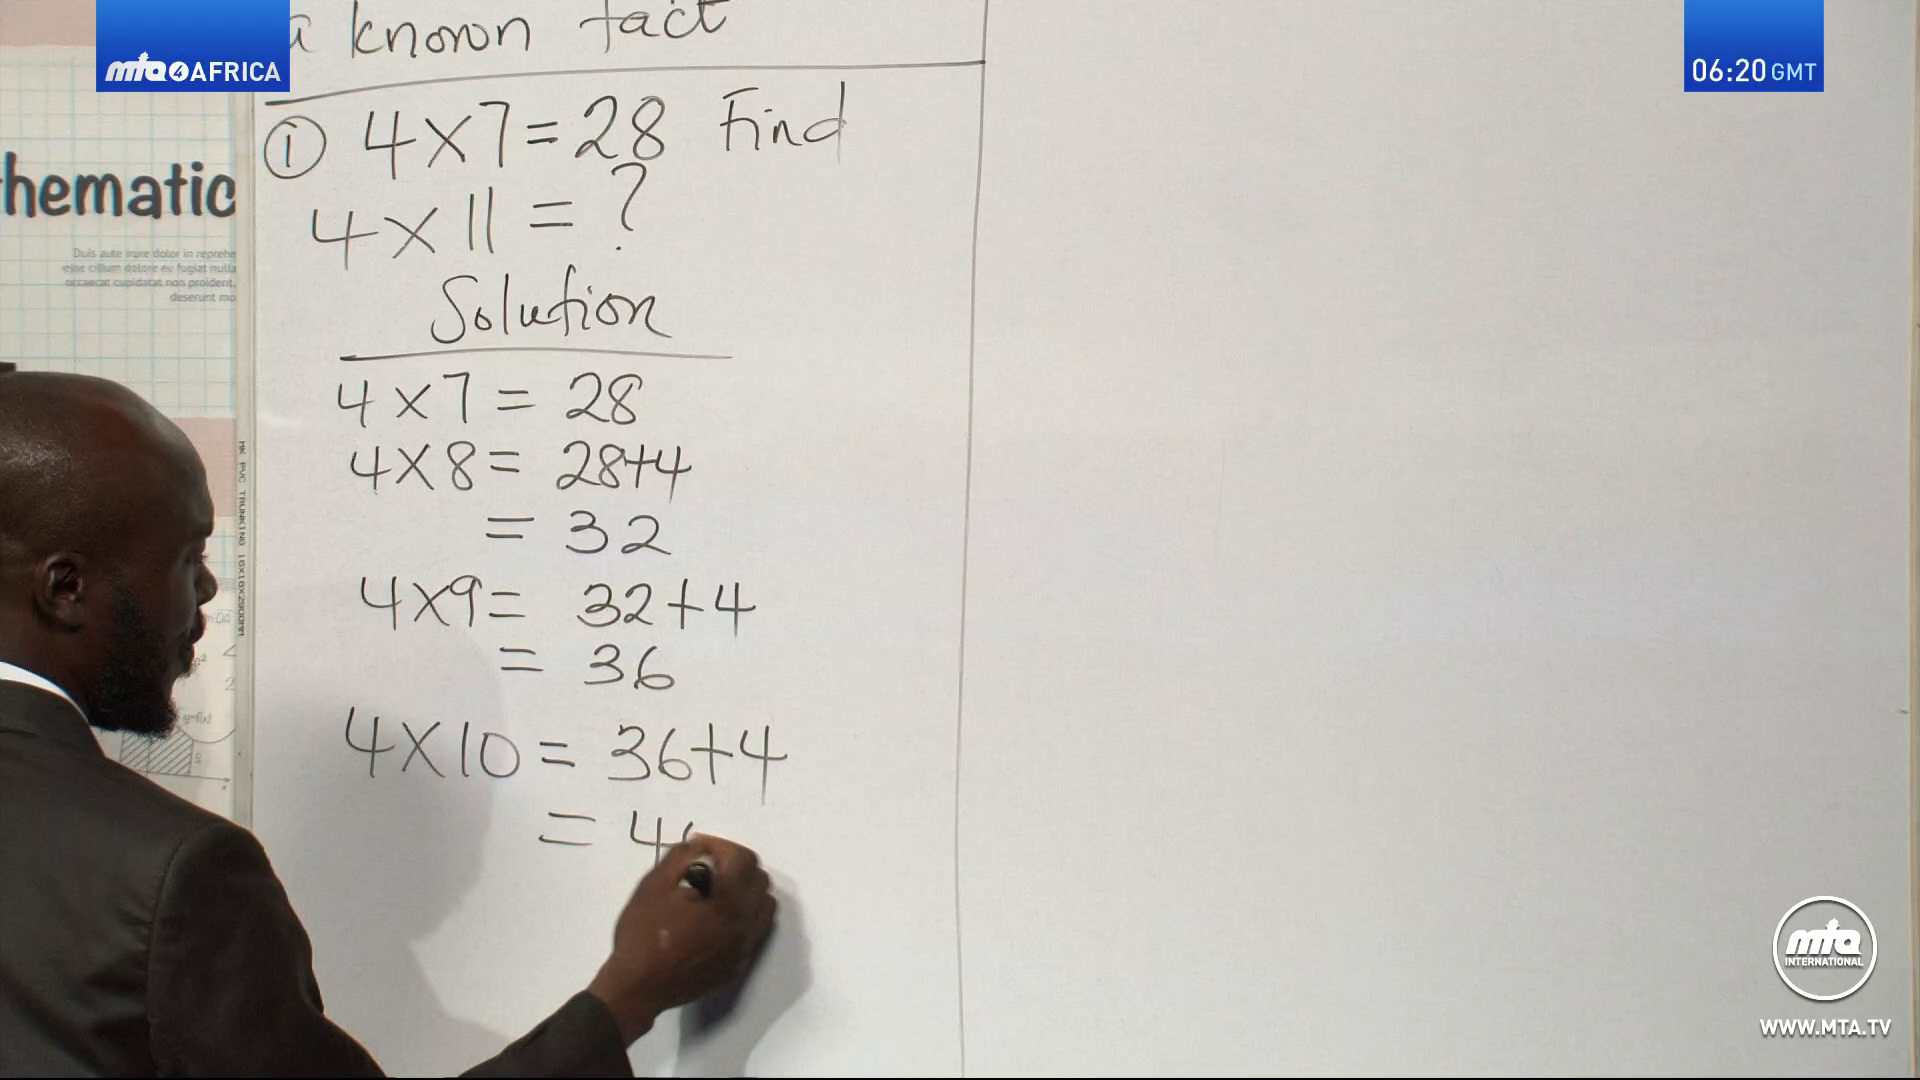 a known fact
mta4AFRICA
06:20 GMT
① 4×7=28 Find
4×11 = ?
Solution
4×7 = 28
4×8 = 28+4
= 32
4×9 = 32+4
= 36
4×10 = 36+4
= 4
hematic
Duis aute irure dolor in reprehe
esse cillum dolore eu fugiat nulla
occaecat cupidatat non proident,
deserunt mo
mta
INTERNATIONAL
WWW.MTA.TV